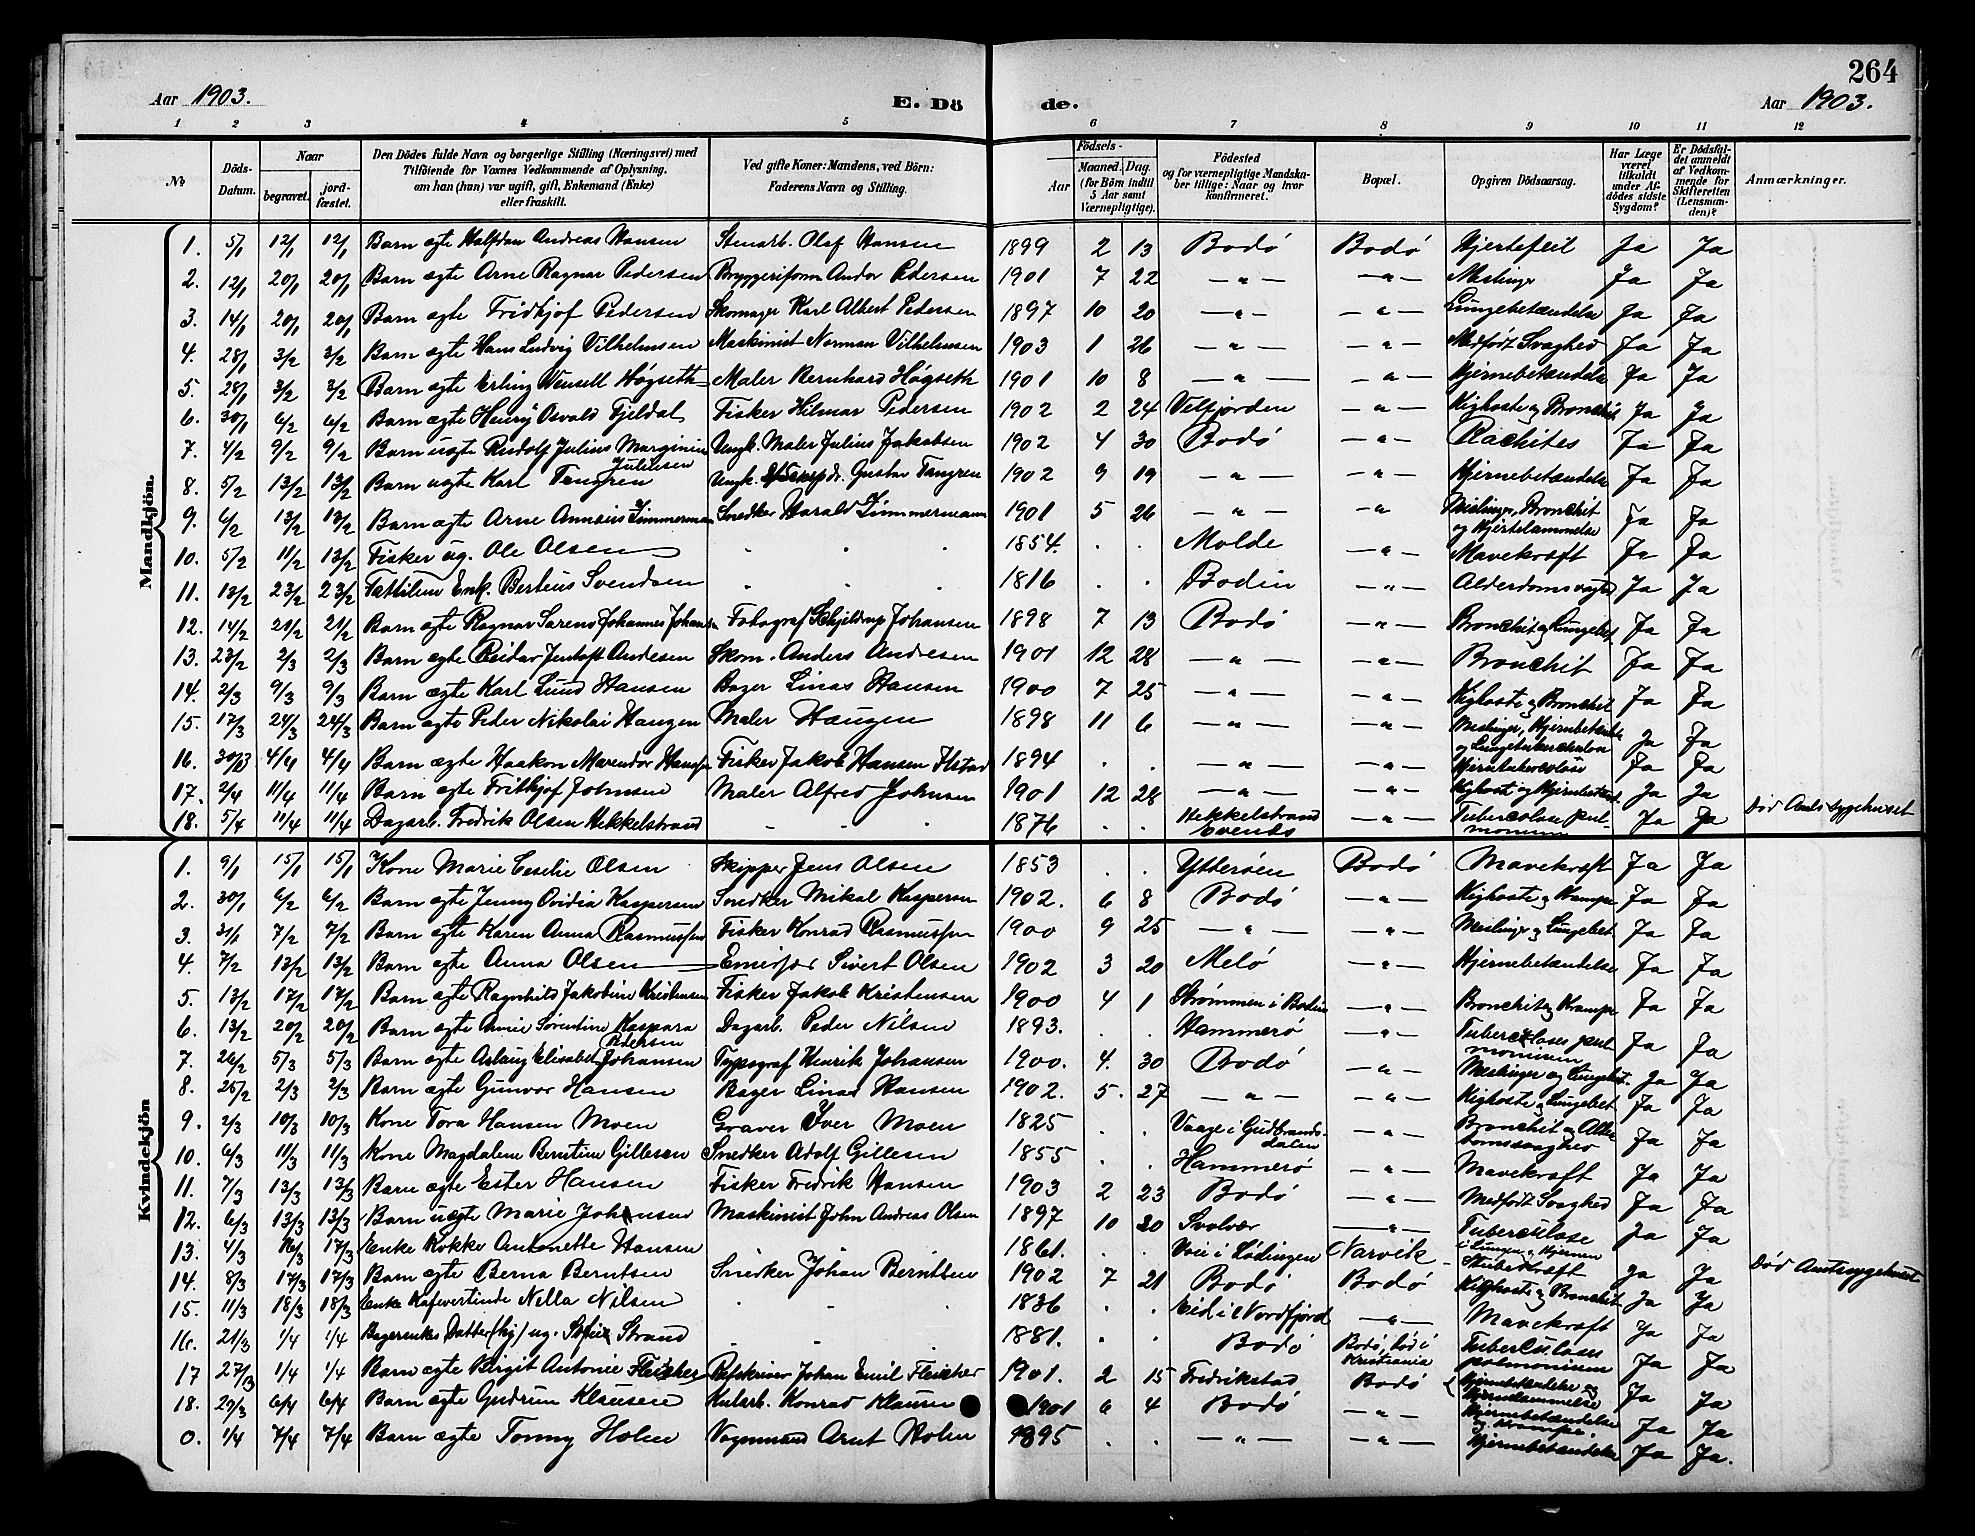 264
Aar 1903. E. Dö de. Aar 1903.
1 2 3 4 5 6 7 8 9 10 11 12
No. Döds-Datum. Naar begravet. jord-fæstet. Den Dödes fulde Navn og borgerlige Stilling (Næringsvei) med Tilföiende for Voxnes Vedkommende af Oplysning, om han (hun) var ugift, gift, Enkemand (Enke) eller fraskilt. Ved gifte Koner: Mandens, ved Börn: Faderens Navn og Stilling. Födsels- Aar Maaned. Dag. (for Börn indtil 5 Aar samt Værnepligtige). Födested og for værnepligtige Mandska-ber tillige: Naar og hvor konfirmeret. Bopæl. Opgiven Dödsaarsag. Har Læge været tilkaldt under Af-dödes sidste Sygdom? Er Dödsfal-det anmeldt af Vedkom-mende for Skifteretten (Lensman-den)? Anmærkninger.
Mandkjön.
1. 5/1 12/1 12/1 Barn ægte Halfdan Andreas Hansen Stenarb. Olaf Hansen 1899 2 13 Bodö Bodö Hjertefeil Ja Ja
2. 12/1 20/1 20/1 Barn ægte Arne Ragnar Pedersen Bryggeriform. Andor Pedersen 1901 7 22 — " — — " — Meslinger Ja Ja
3. 14/1 20/1 20/1 Barn ægte Fridhjof Pedersen Skomager Karl Albert Pedersen 1897 10 20 — " — — " — Lungebetændelse Ja Ja
4. 28/1 3/2 3/2 Barn ægte Hans Ludvig Vilhelmsen Maskinist Norman Vilhelmsen 1903 1 26 — " — — " — Medfødt Svaghed Ja Ja
5. 28/1 3/2 3/2 Barn ægte Erling Wensell Høgseth Maler Bernhard Høgseth 1901 10 8 — " — — " — Hjernebetændelse Ja Ja
6. 30/1 6/2 6/2 Barn ægte Henry Osvald Fjeldal Fisker Hilmar Pedersen 1902 2 24 Velfjorden — " — Kighoste og Bronchit Ja Ja
7. 4/2 9/2 9/2 Barn uægte Rudolf Julius Marginius Juliussen Ungk. Maler Julius Jakobsen 1902 4 30 Bodö — " — Rachites Ja Ja
8. 5/2 13/2 13/2 Barn uægte Karl Tangren Ungk. Gustav Tangren 1902 9 19 — " — — " — Hjernebetændelse Ja Ja
9. 6/2 13/2 13/2 Barn ægte Arne Annæus Zimmerman Snedker Harald Zimmermann 1901 5 26 — " — — " — Meslinger, Bronchit og Hjertelammelse Ja Ja
10. 5/2 11/2 13/2 Fisker ug. Ole Olsen " " " 1854. . . Molde — " — Mavekræft Ja Ja
11. 13/2 23/2 23/2 Fattilem Enk. Berteus Svendsen " " " 1816 . . Bodin — " — Alderdomssvaghed Ja Ja
12. 14/2 21/2 21/2 Barn ægte Ragnar Søreno Johannes Johansen Fotograf Schjeldrup Johansen 1898 7 13 Bodö — " — Bronchit og Lungebet. Ja Ja
13. 23/2 2/3 2/3 Barn ægte Reidar Jentoft Andesen Skom. Anders Andresen 1901 12 28 — " — — " — Bronchit Ja Ja
14. 2/3 9/3 9/3 Barn ægte Karl Lund Hansen Bager Linas Hansen 1900 7 25 — " — — " — Kighoste og Bronchit Ja Ja
15. 17/3 24/3 24/3 Barn ægte Peder Nikolai Haugen Maler Haugen 1898 11 6 — " — — " — Meslinger, Hjernebetændelse og Lungetuberchulose Ja Ja
16. 30/3 4/4 4/4 Barn ægte Haakon Marendor Hansen Fisker Jakob Hansen Ilstad 1894 . . — " — — " — Hjernetuberculose Ja Ja
17. 2/4 11/4 11/4 Barn ægte Frithjof Johnsen Maler Alfred Johnsen 1901 12 28 — " — — " — Kighost og Hjernebetænd. Ja Ja
18. 5/4 11/4 11/4 Dagarb. Fredrik Olsen Hekkelstrand — — — 1876 . . Hekkelstrand Evenes — " — Tuberculose pul-monum Ja Ja Död Amtssygehuset
Kvindekjön
1. 9/1 15/1 15/1 Kone Marie Cecelie Olsen Skipper Jens Olsen 1853 . . Ytterøen Bodö Mavekræft Ja Ja
2. 30/1 6/2 6/2 Barn ægte Jenny Ovidia Kaspersen Snedker Mikal Kaspersen 1902. 6 8 Bodö — " — Kighoste og Krampe Ja Ja
3. 31/1 7/2 7/2 Barn ægte Karen Anna Rasmussen Fisker Konrad Rasmussen 1900 9 25 — " — — " — Meslinger og Lungebet. Ja Ja
4. 7/2 13/2 13/2 Barn ægte Anna Olsen Sivert Olsen 1902 3 20 Melö — " — Hjernebetændelse Ja Ja
5. 13/2 17/2 17/2 Barn ægte Ragnhild Jakobine Kristensen Fisker Jakob Kristensen 1900 4 1 Strømmen i Bodin — " — Bronchit og Krampe Ja Ja
6. 13/2 20/2 20/2 Barn ægte Annie Sørentine Kaspara Pedersen Dagarb. Peder Nilsen 1893. . . Hammerö — " — Tuberculoses pul-monum Ja Ja
7. 26/2 5/3 5/3 Barn ægte Aslaug Elisabet Johansen Typograf Henrik Johansen 1900. 4. 30 Bodö — " — Meslinger og Lungebet. Ja Ja
8. 25/2 2/3 2/3 Barn ægte Gunvor Hansen Bager Linas Hansen 1902. 5. 27 — " — — " — Kighoste og Lungebet. Ja Ja
9. 2/3 10/3 10/3 Kone Tora Hansen Moen Graver Iver Moen 1825 . . Vaage i Gudbrands-dalen — " — Bronchit og Alder-domssvaghed Ja Ja
10. 6/3 11/3 11/3 Kone Magdalene Berntine Gillesen Snedker Adolf Gillesen 1855 . . Hammerö — " — Mavekræft Ja Ja
11. 7/3 13/3 13/3 Barn ægte Ester Hansen Fisker Fredrik Hansen 1903 2 23 Bodö — " — Medfødt Svaghed Ja Ja
12. 6/3 13/3 13/3 Barn uægte Marie Johansen Maskinist John Andreas Olsen 1897 10 20 Svolvær — " — Tuberculose i Lunge og Hjernen Ja Ja
13. 4/3 16/3 17/3 Enke Kokke Antonette Hansen 1861. . . Voie i Lødingen Narvik Struberkræft Ja Ja Död Amtssygehuset
14. 8/3 17/3 17/3 Barn ægte Berna Berntsen Snedker Johan Berntsen 1902 7 21 Bodö Bodö Kighoste og Bronchit Ja Ja
15. 11/3 18/3 18/3 Enke Kafevertinde Nella Nilsen " " 1836 . . Eid i Nordfjord — " — Mavekræft Ja Ja
16. 21/3 1/4 1/4 Bagerenkes Datter (hj) ug. Sofie Strand " " 1881. . . Bodö Bodö, död i Kristiania Tuberculoses pulmonum Ja Ja
17 27/3 1/4 1/4 Barn ægte Birgit Antonie Fleischer Johan Emil Fleischer 1901. 2 15 Fredrikstad Bodö Hjernebetændelse og Hjernelammelse Ja Ja
18. 29/3 6/4 6/4 Barn ægte Gudrun Klausen Kularb. Konrad Klausen 1901 6 4 Bodö — " — Hjernebetændelse og Krampe Ja Ja
0. 1/4 7/4 7/4 Barn ægte Tonny Holm Vognmand Arnt Holm 1895 . . — " — — " — Hjernebetændelse Ja Ja.